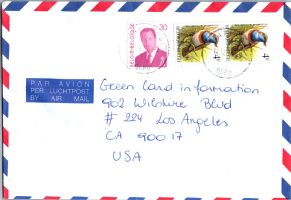 30
PAR AVION
PER LUCHTPOST
BY AIR MAIL
Green Card information
902 Wilshire Blvd
# 224 Los Angeles
CA 90017
USA